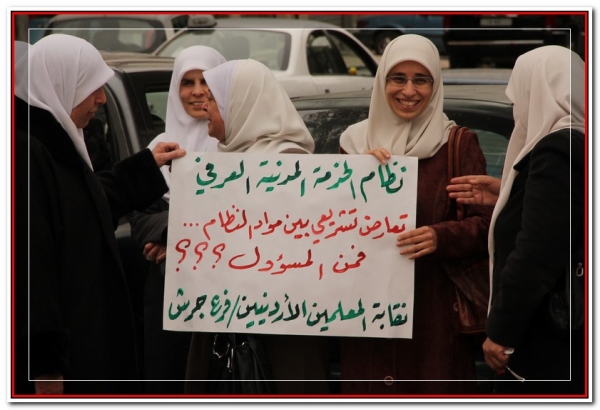 نظام الخدمة المدنية العرفي
تعارض تشريعي بين مواد النظام ...
فمن المسؤول ؟؟؟
نقابة المعلمين الأردنيين/فرع جرش